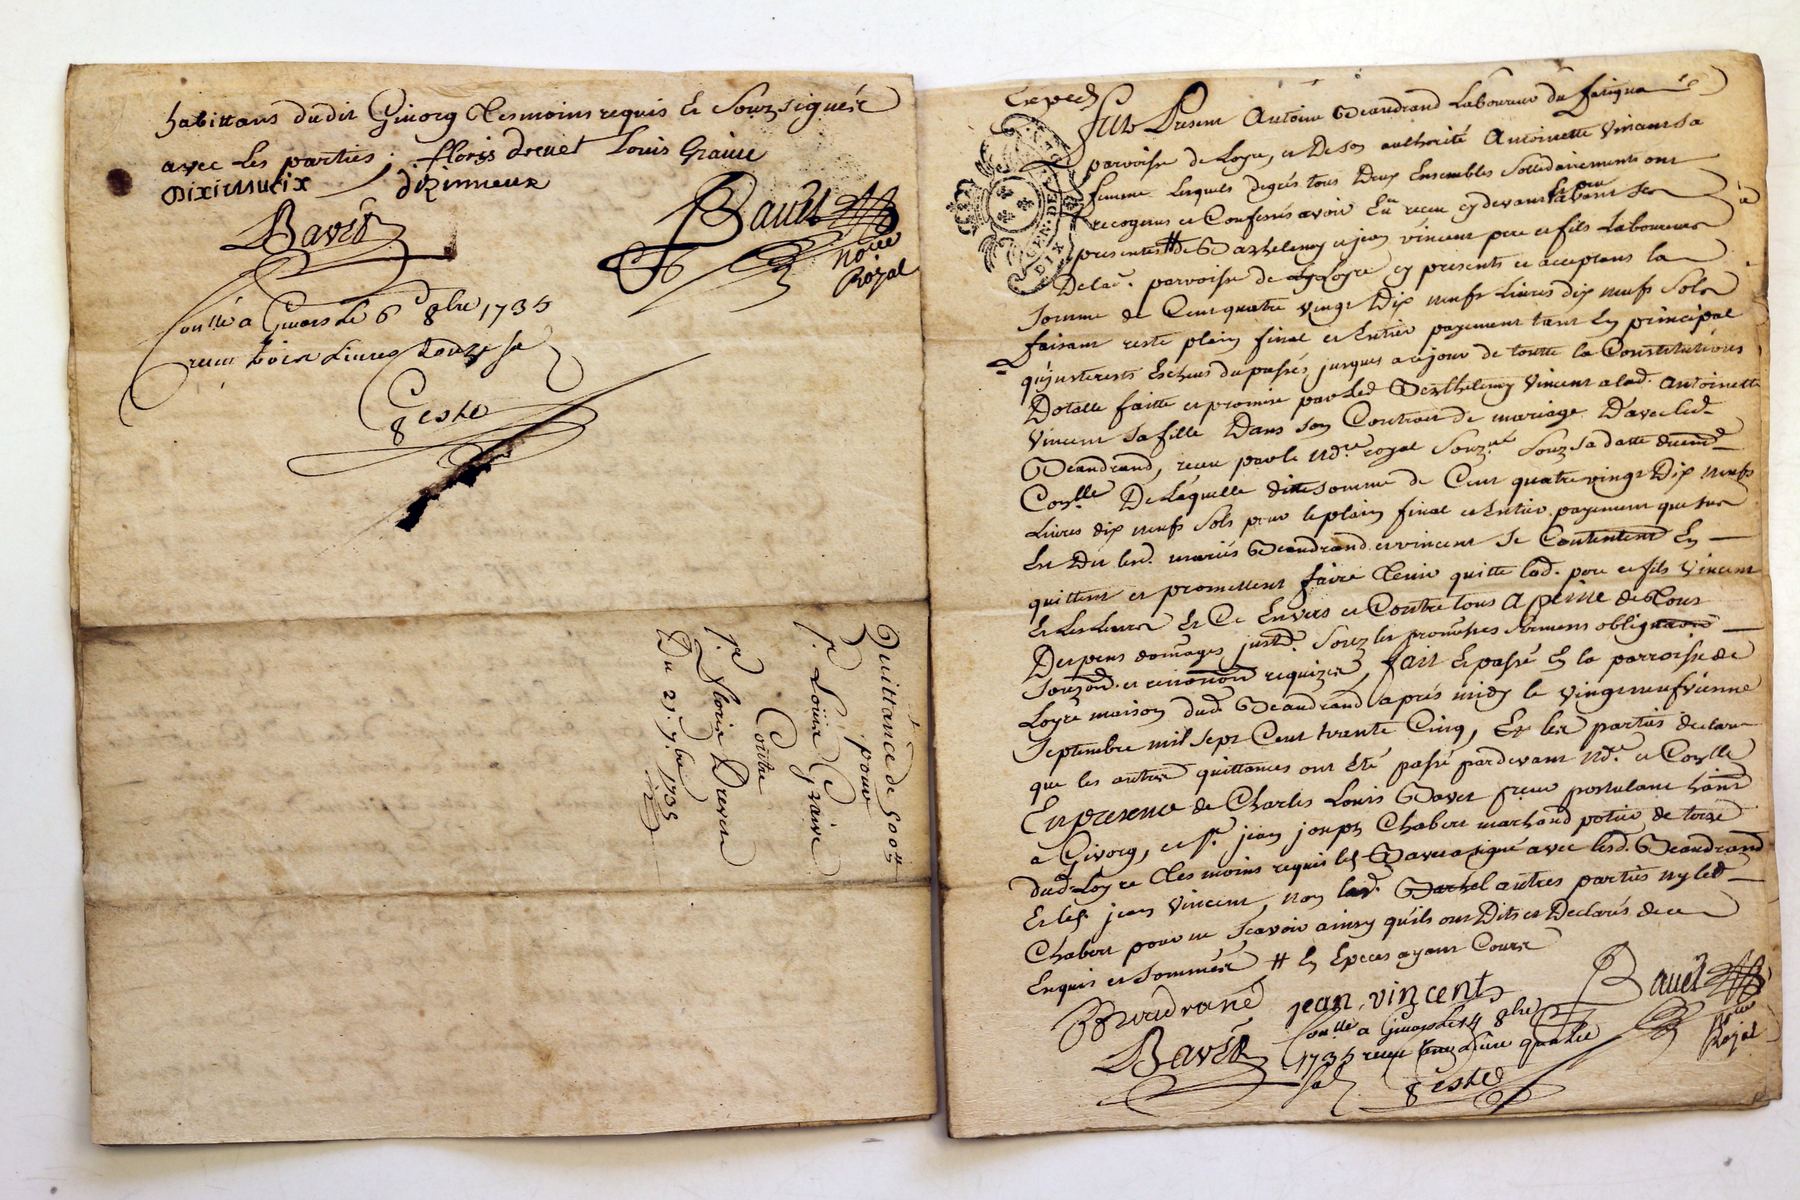 habittans dudit Givorg tesmoins requis et souzsignés
avec les parties, floris drevet Louis Graive
dizimieux
Bavet
Bavet
no.re
Royal
Conllé a Givors le 6 8bre 1735
receu trois Livres douze s
Geste
Quittance de 500
pour
s.r Louis Graive
Contre
s.r floris Drevet
Du 29 7bre 1735
Exped
GEN. DE
DIX
Fut Present Antoine Beaudrand Laboureur du
parroisse de Loyre, et De son authorité Antoinette Vincent sa
femme Lesquels degrés tous Deux Ensembles Sollidairement ont
recogneus et Confessés avoir Eu receu cy devant et peu avant ses
presentes # de Barthelemy et jean vincent pere et fils Laboureurs
De lad. parroisse de Loyre cy presents et acceptans la
somme de Cent quatre vingt Dix neufs Livres dix neufs Sols
faisant reste plain final et Entier payement tant En principal
qu'jnterests Escheus du passés jusques a ce jour de toutte la Constitution
Dotalle faitte et promise par led Berthelemy Vincent a lad. Antoinette
Vincent sa fille Dans son Contrat de mariage D'avec led.
Beaudrand, receu par le nd.re royal Souz.né Souz sa datte deument
Con.llé De Laquelle ditte somme de Cent quatre vingt Dix neufs
Livres dix neufs Sols pour le plain final et Entier payement que sur
Est Dit lesd. mariés Beaudrand et vincent se Contentent En
quittent et promettent faire tenir quitte lesd. pere et fils Vincent
Et Les Leurs Et Ce Envers et Contre tous A peine de Tous
Despens domages jnst.d Souz les promesses serments obligations
Souz.ons et renontion requizes, fait et passé En la parroisse de
Loyre maison dud. Beaudrand apres midy le vingt neufvieme
Septembre mil sept Cent trante Cinq, Et les parties declare
que les autres quittances ont Eté passé pardevant nd.re et Con.llé
En presence de Charles Louis Bavet p.cien postulant habit
a Givorg, et s.r jean joseph Chabert marchand potier de terre
dud Loyre tesmoins requis led Bavet a signé avec lesd. Beaudrand
Et led. jean Vincent, non les autres parties ny led
Chabert pour ne sçavoir ainsy qu'ils ont Dits et Declarés de ce
Enquis et sommés # En Especes ayant Cours
Beaudrand jean vincent Bavet
no.re
Royal
Bavet Con.llé a Givors le 14 8bre
1735 receu une Livre quatre
s Geste